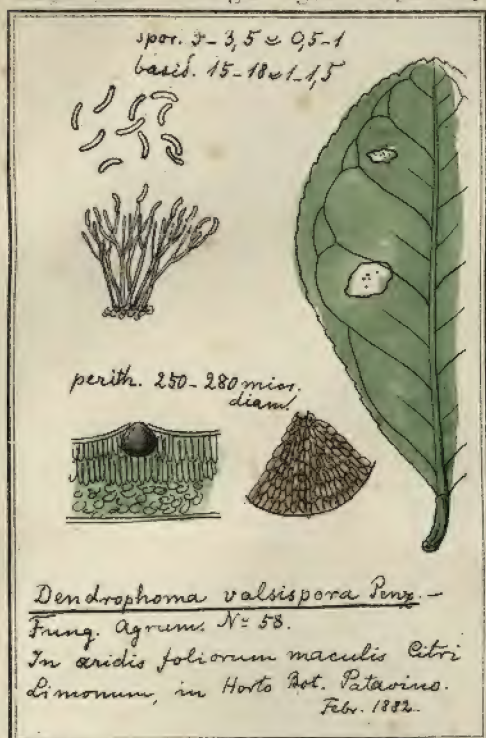 spor. 3-3,5 ≈ 0,5-1
basid. 15-18 ≈ 1-1,5
perith. 250-280 micr.
diam.
Dendrophoma valsispora Penz. -
Fung. Agrum. Nº 58.
In aridis foliorum maculis Citri
Limonum, in Horto Bot. Patavino.
Febr. 1882.